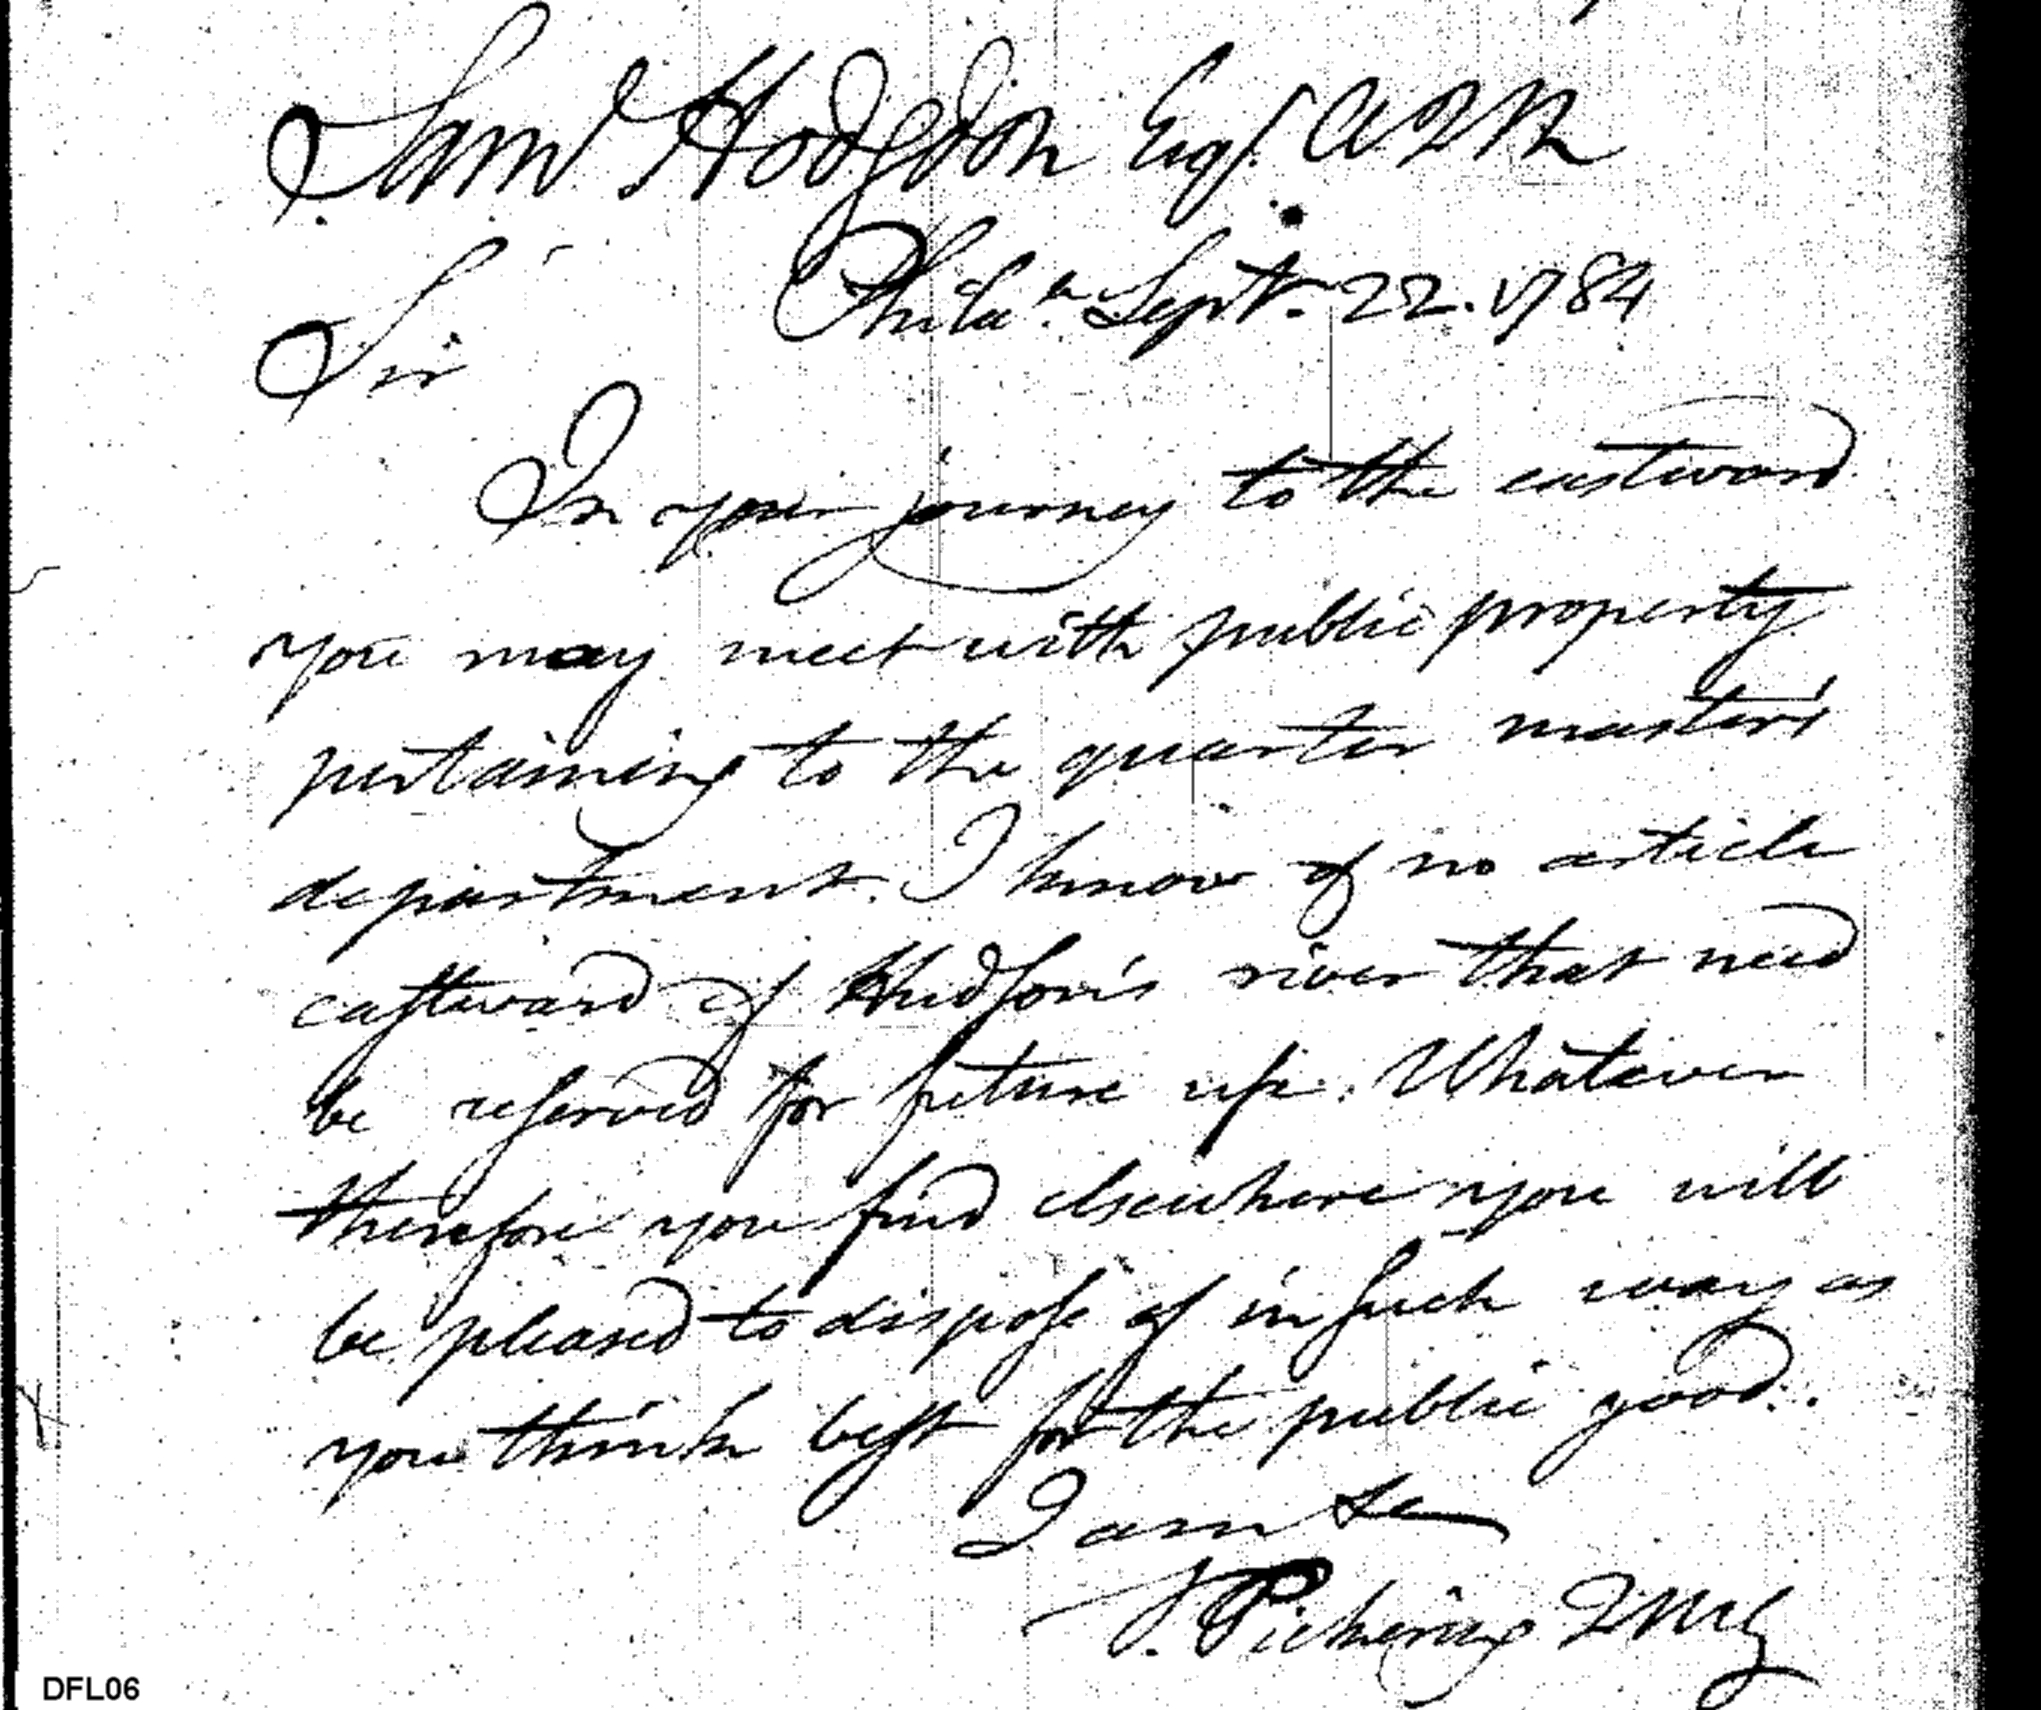 Saml Hodgdon Esqr. A2M
Phila. Sept. 22. 1784
Sir
In your journey to the eastward
you may meet with public property
pertaining to the quarter master's
department. I know of no article
eastward of Hudson's river that need
be reserved for future use. Whatever
therefore you find elsewhere you will
be pleased to dispose of in such way as
you think best for the public good.
I am &c
T. Pickering QMG
DFL06